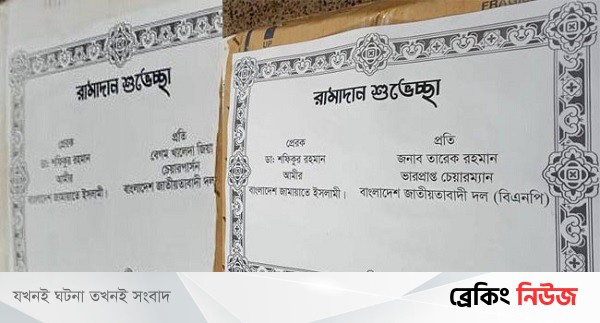 রামাদান শুভেচ্ছা
প্রেরক
ডা: শফিকুর রহমান
আমীর
বাংলাদেশ জামায়াতে ইসলামী।
প্রতি
বেগম খালেদা জিয়া
চেয়ারপার্সন
বাংলাদেশ জাতীয়তাবাদী দল
UP
FRAGILE
রামাদান শুভেচ্ছা
প্রেরক
ডা: শফিকুর রহমান
আমীর
বাংলাদেশ জামায়াতে ইসলামী।
প্রতি
জনাব তারেক রহমান
ভারপ্রাপ্ত চেয়ারম্যান
বাংলাদেশ জাতীয়তাবাদী দল (বিএনপি)
যখনই ঘটনা তখনই সংবাদ
ব্রেকিং নিউজ